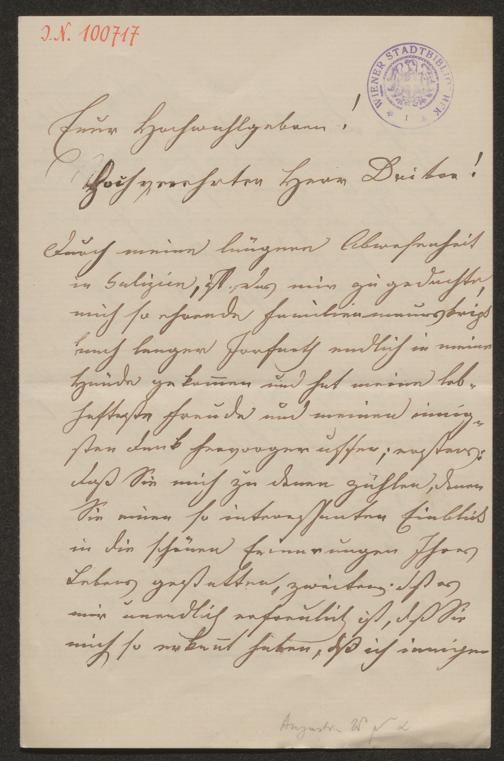 J.N. 100717
WIENER STADTBIBLIOTHEK
Euer Hochwohlgeboren!
Hochverehrter Herr Doctor!
Durch meine längere Abwesenheit
in Galizien, ist das mir zugedachte,
mich so ehrende Familienmanuskript
nach langer endlich in meine
Hände gekommen und hat meine leb-
hafteste Freude und meinen innig-
sten Dank hervorgerufen; erstens:
daß Sie mich zu denen zählen, denen
Sie einen so interessanten Einblick
in die schönen Erinnerungen Ihres
Lebens gestatten, zweitens: daß es
mir unendlich erfreulich ist, daß Sie
mich so erkannt haben, daß ich innigen